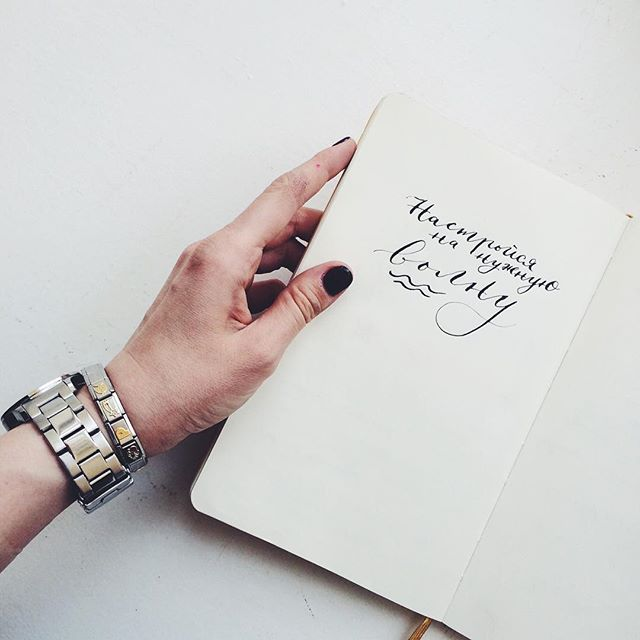 Настройся
на нужную
волну